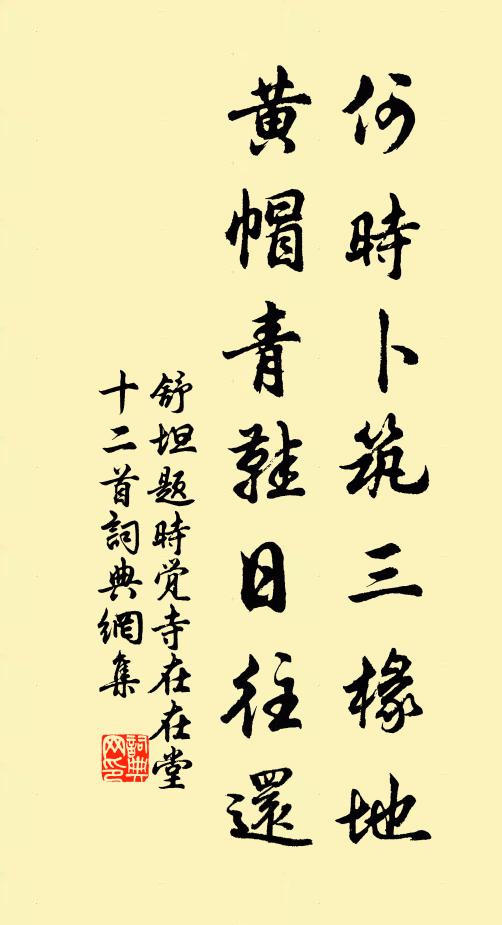 何時卜筑三椽地
黄帽青鞋日往還
舒坦題時觉寺在在堂
十二首詞典網集
詞典
网印